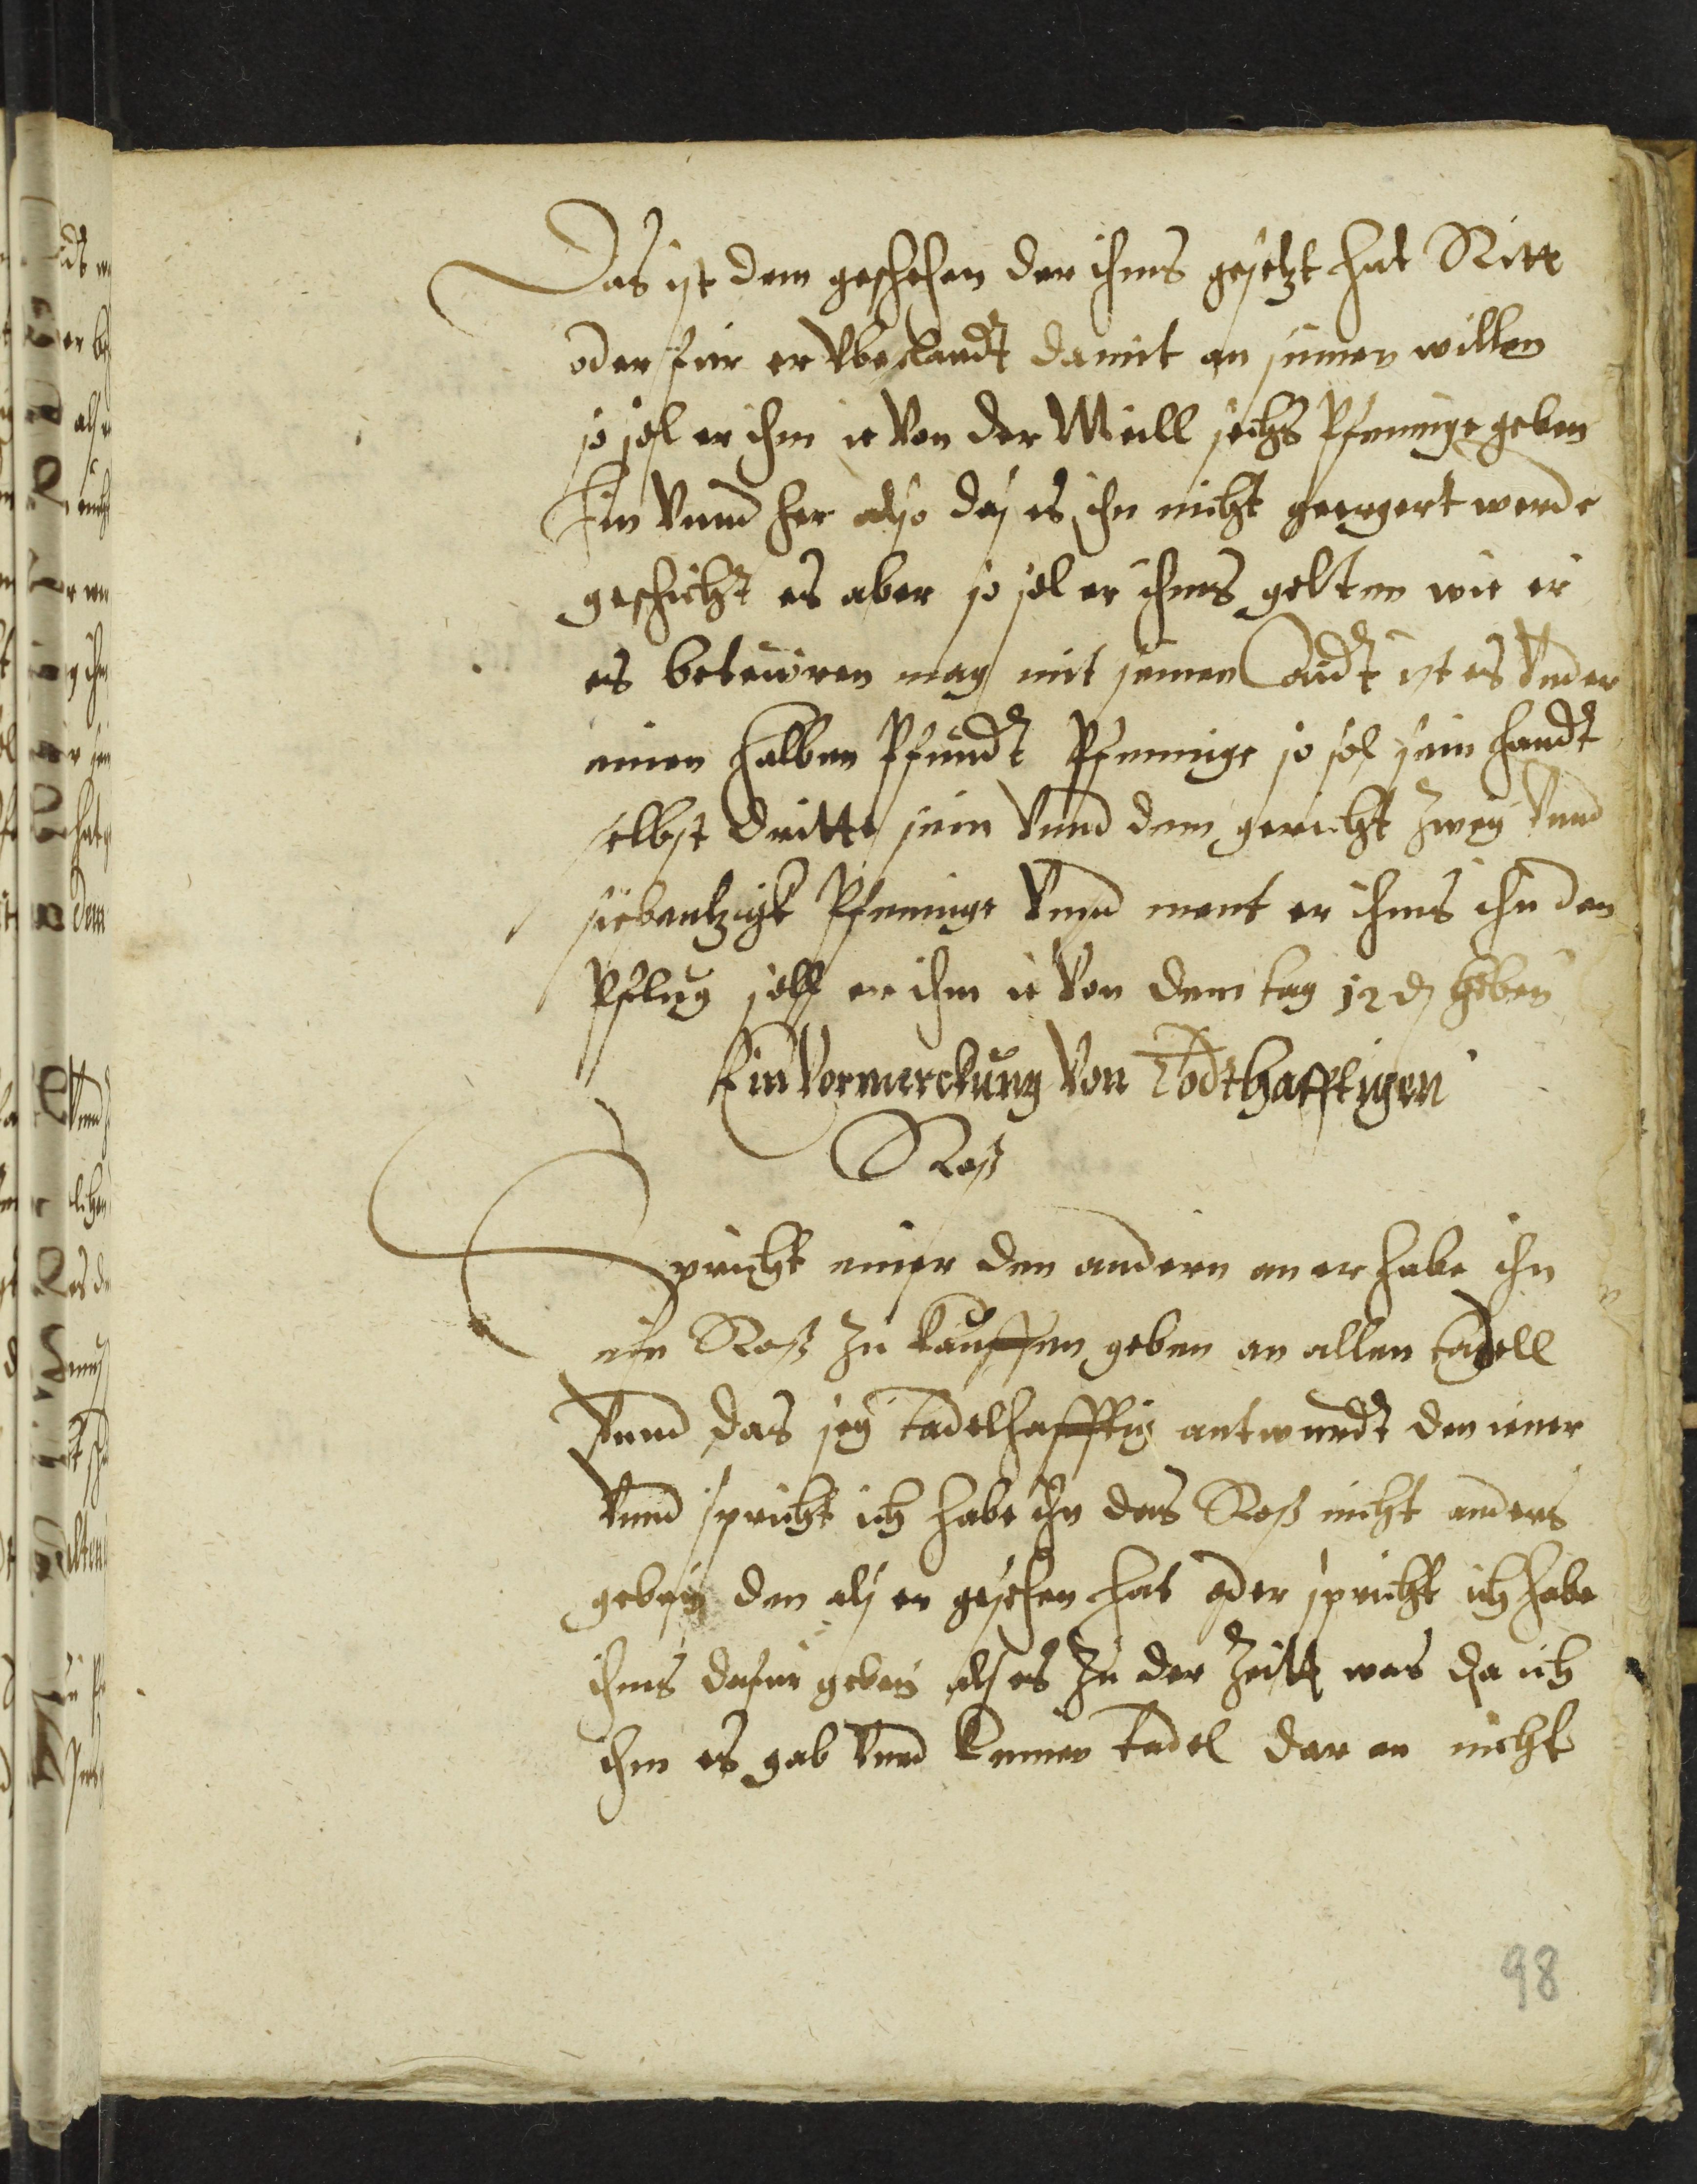 Das ist dem geschehen der ihms gesetzt hat Ritt
oder fur er vberlandt damit an seinen willen
so sol er ihm ie von der Meill sechs Pfeninge geben
hin vnnd her also das es ihn nicht geergert werde
geschicht es aber so sol er ihms gelten wie er
es beteuren mag mit seinen Aidt ist es vnder
einen halben Pfundt Pfeninge so sol sein handt
selbst dritte sein vnnd dem gericht zwey vnnd
siebentzigk Pfeninge vnnd ment er ihms ihn den
Pflug soll er ihm ie von dem tag 12 ₰ geben
Ein vormerckung von Todthafftigen
Roß
Spricht einer den andern an er habe ihn
ein Roß zu kauffen geben an allen tadell
vnnd das sey tadelhafftig antwurdt den iener
vnnd spricht ich habe ihn das Roß nicht anders
geben den als er gesehen hat oder spricht ich habe
ihms dafur geben als es zu der Zeitt was da ich
ihm es gab vnnd keinen tadel dar an nicht
98